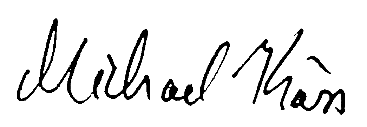 Michael Kass